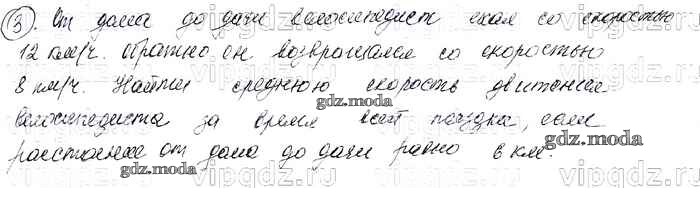 ③. От дома до дачи велосипедист ехал со скоростью
12 км/ч. обратно он возвращался со скоростью
8 км/ч. Найти среднюю скорость движения
gdz.moda
велосипедиста за время всей поездки, если
gdz.moda
расстояние от дома до дачи равно 6 км.
gdz.moda
vipgdz.ru